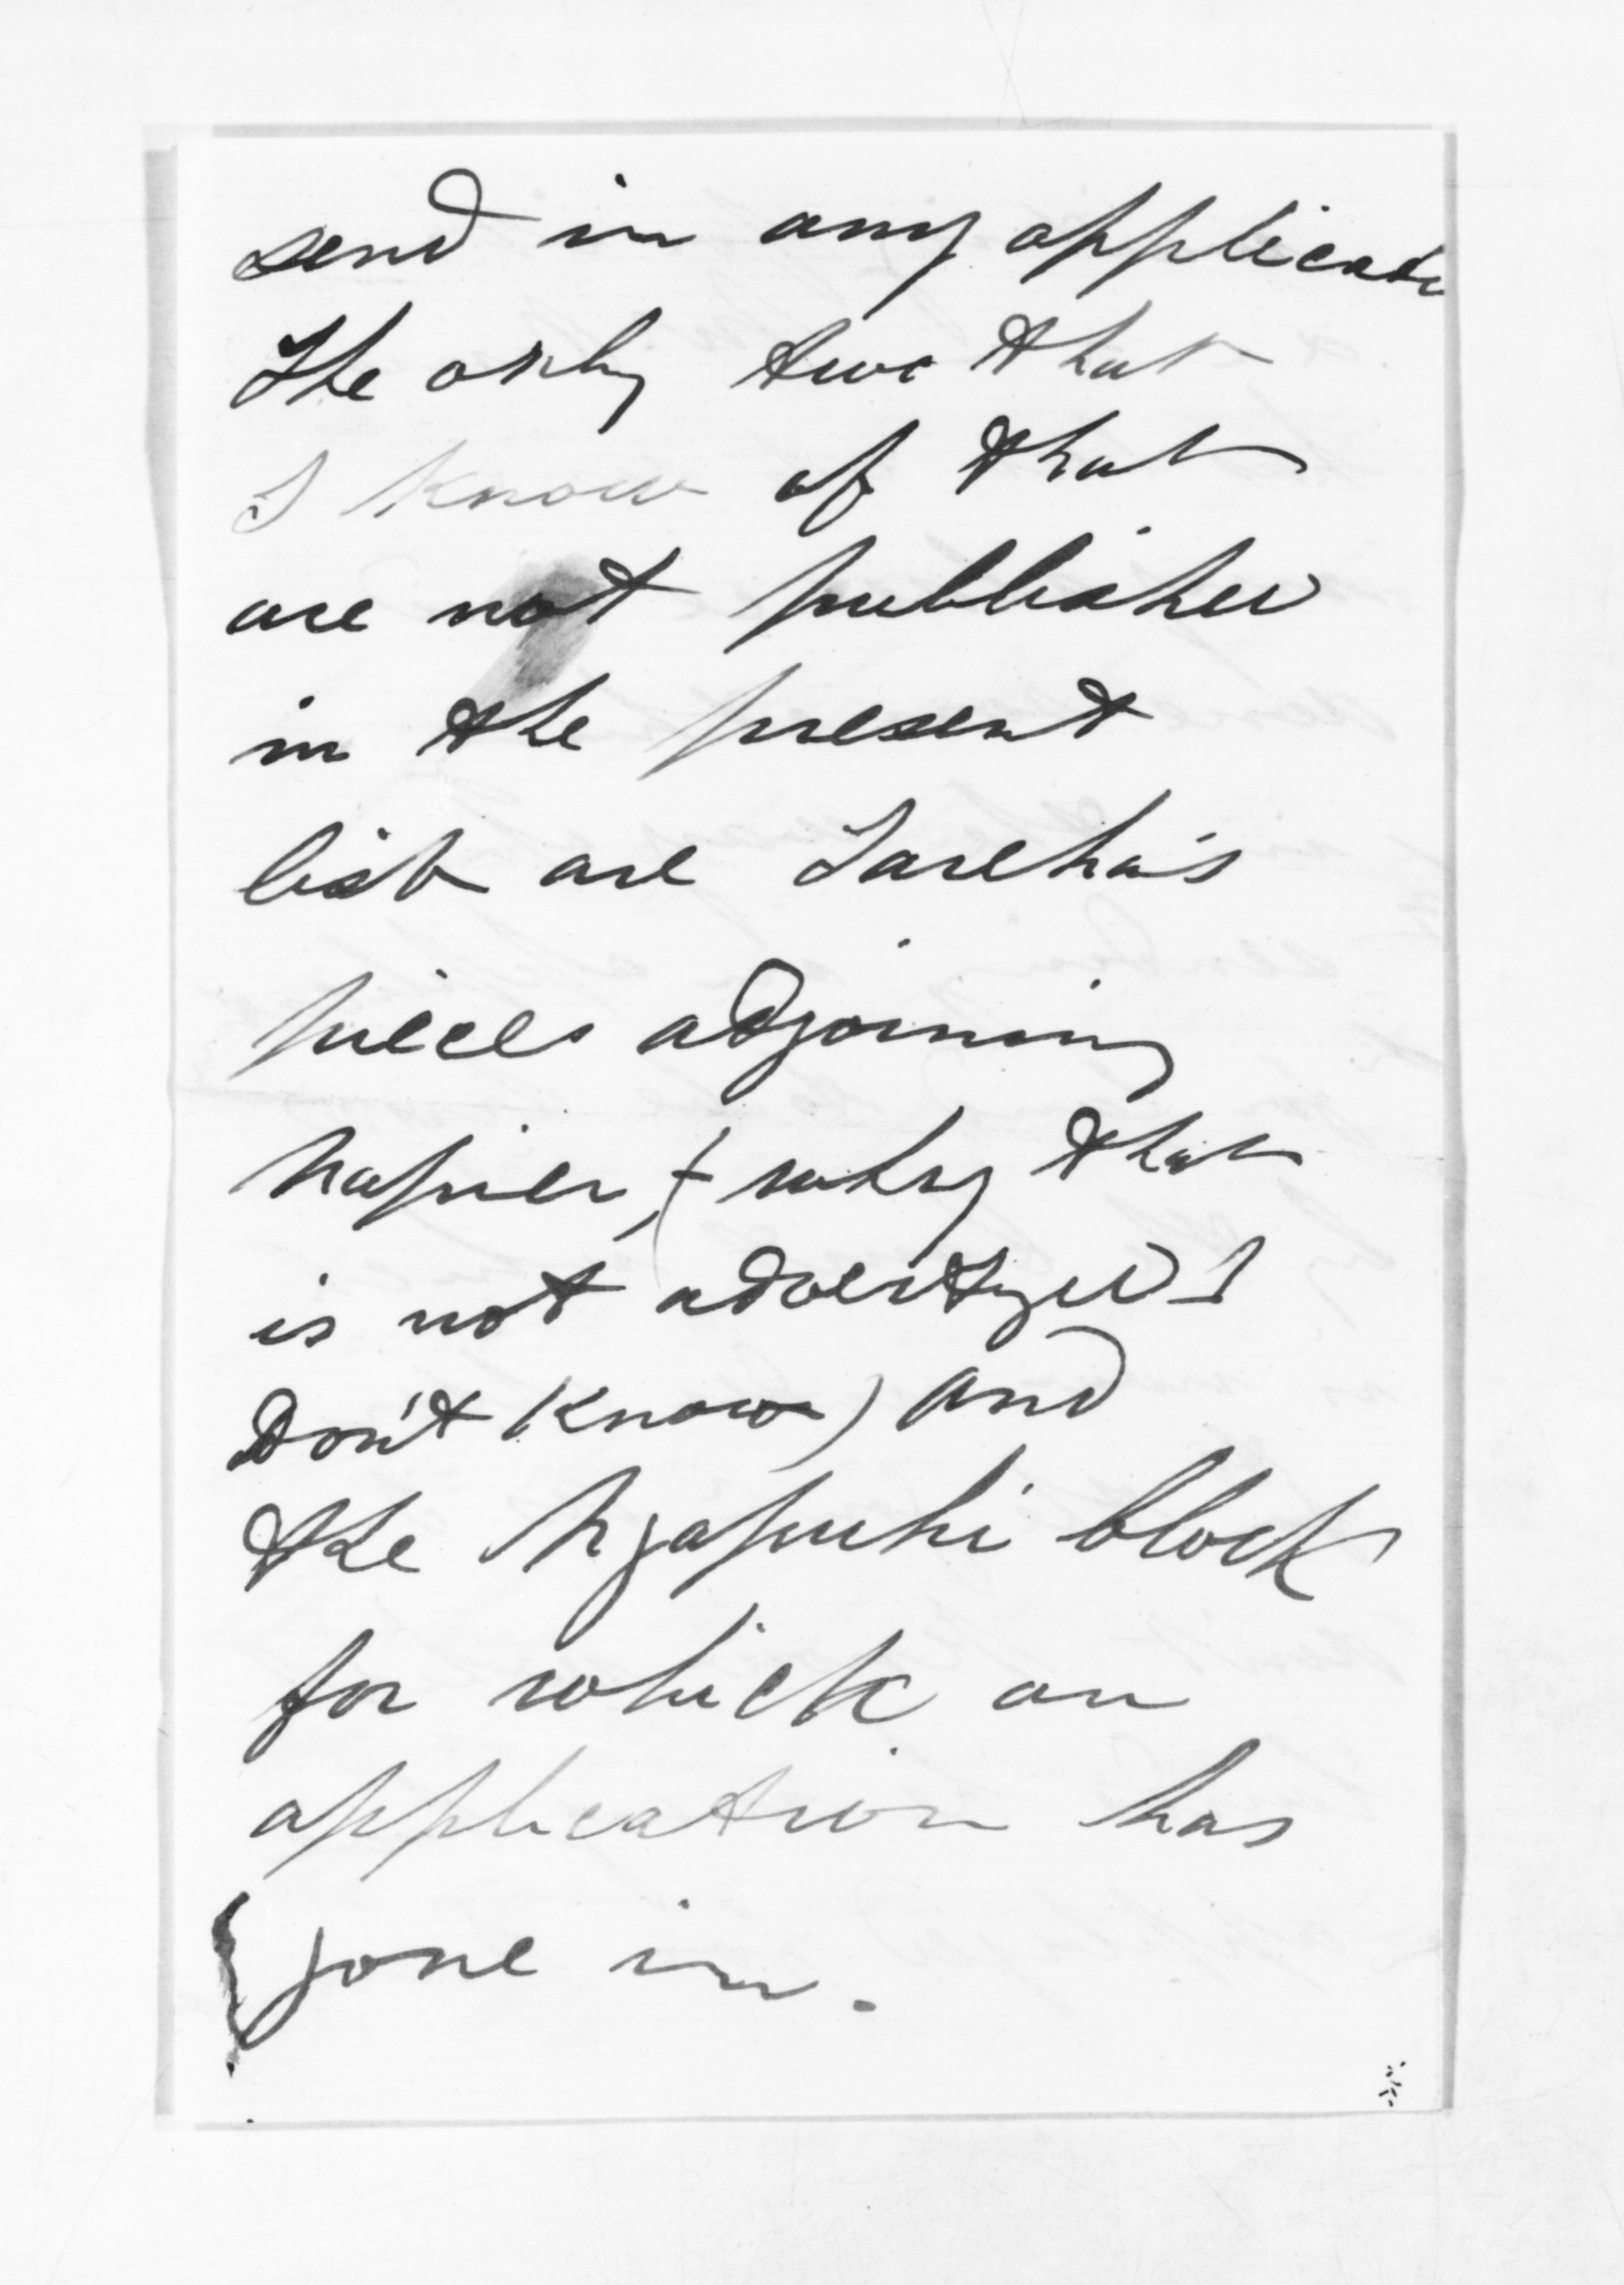 send in any applicati
The only two that
I know of that
are not published
in the present
list are Tareha's
pieces adjoining
Napier, (+ why that
is not advertized I
Don't know) and
the Ngapuhi block
for which an
application has
gone in.